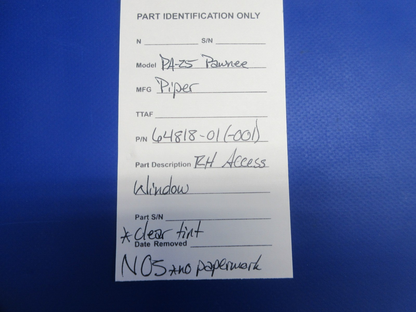 PART IDENTIFICATION ONLY
N S/N
Model PA-25 Pawnee
MFG Piper
TTAF
P/N 64818-01 (-001)
Part Description RH Access
Window
Part S/N
* Clear tint
Date Removed
NOS *no paperwork